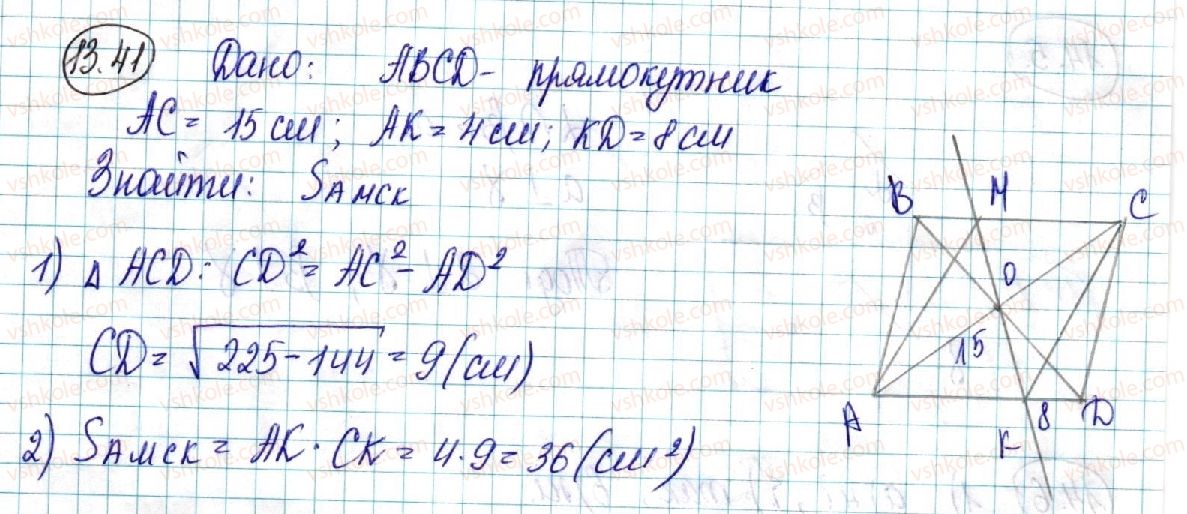 13.41 Дано: ABCD- прямокутник
AC = 15 см; AK = 4 см; KD = 8 см
Знайти: SАМСК
1) Δ ACD: CD² = AC² - AD²
CD = √225-144 = 9 (см)
2) SАМСК = AK · CK = 4·9 = 36 (см²)
B M C
O
15
A K 8 D